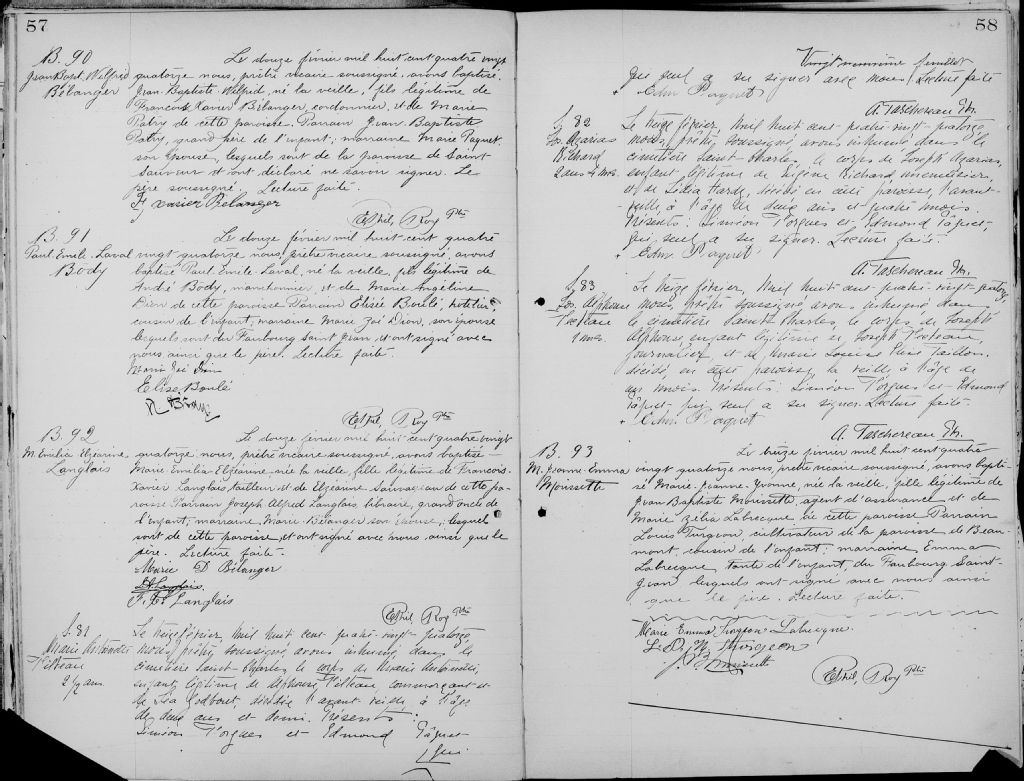 57
B. 90
Jean Bapt. Wilfrid
Bélanger
Le douze février mil huit cent quatre vingt
quatorze nous, prêtre vicaire soussigné, avons baptisé
Jean-Baptiste Wilfrid, né la veille, fils légitime de
François Xavier Bélanger, cordonnier, et de Marie
Patry de cette paroisse. Parrain Jean Baptiste
Patry, grand père de l'enfant; marraine Marie Paquet
son épouse, lesquels sont de la paroisse de Saint
Sauveur et ont déclaré ne savoir signer. Le
père soussigné. Lecture faite.
F. Xavier Belanger
Ephil. Roy Ptre
B. 91
Paul. Emile. Laval
Body
Le douze février mil huit-cent quatre
vingt quatorze nous, prêtre vicaire soussigné, avons
baptisé Paul Emile Laval, né la veille, fils légitime de
André Body, manchonnier, et de Marie Angéline
Dion de cette paroisse. Parrain Elisée Boulé, hotelier,
cousin de l'enfant, marraine Marie Zoé Dion, son épouse
lesquels sont du Faubourg Saint Jean, et ont signé avec
nous ainsi que le père. Lecture faite.
Marie Zoé Dion
Elisé Boulé
Ephil. Roy Ptre
B. 92
M. Emilia Elzéanne
Langlois
Le douze février mil huit cent quatre vingt
quatorze, nous, prêtre vicaire soussigné, avons baptisé
Marie Emilia Elzéanne née la veille, fille légitime de François-
Xavier Langlois, tailleur, et de Elzéanne Sauvageau de cette pa-
roisse. Parrain Joseph Alfred Langlais, libraire, grand oncle de
l'enfant; marraine, Marie Bélanger son épouse; lesquels
sont de cette paroisse et ont signé avec nous ainsi que le
père. Lecture faite.
Marie D Bélanger
J. A. Langlais
F. X. Langlais
Ephil. Roy Ptre
S. 81
Marie Antoinette
Pelteau
2 1/2 ans.
Le treize février, Mil huit cent quatre-vingt-quatorze,
nous, prêtre soussigné, avons inhumé dans le
cimetière Saint-Charles, le corps de Marie Antoinette,
enfant légitime de Alphonse Pelteau, commerçant et
de Léa Godbout, décédée l'avant veille, à l'âge
de deux ans et demi. Présents:
Siméon Vorgues et Edmond Pâquet
qui
58
Vingt neuvième feuillet
qui seul a su signer avec nous. Lecture faite
Edm. Paquet
A. Taschereau Ptr.
S. 82
Jos. Azarias
Richard
2 ans 4 mois.
Le treize février, Mil huit cent-quatre-vingt-quatorze
nous, prêtre, soussigné, avons inhumé dans le
cimetière Saint-Charles, le corps de Joseph Azarias,
enfant légitime de Eugène Richard menuisier,
et de Lidia Hardy, décédé en cette paroisse, l'avant-
veille, à l'âge de deux ans et-quatre mois.
Présents: Siméon Vorgues et Edmond Pâquet,
qui seul a su signer. Lecture faite.
Edm. Paquet
A. Taschereau Ptr.
S. 83
Jos. Alphonse
1 mois.
Le treize février, Mil huit cent-quatre-vingt-quatorze
nous, prêtre soussigné, avons inhumé dans
le cimetière Saint-Charles, le corps de Joseph
Alphonse, enfant légitime de Joseph
journalier, et de Marie Louise
décédé, en cette paroisse, la veille à l'âge de
un mois. Présents: Siméon Vorgues et-Edmond
Pâquet-qui seul a su signer. Lecture faite.
Edm. Paquet
A. Taschereau Ptr.
B. 93
M. Jeanne-Emma
Morissette
Le treize février mil huit cent quatre
vingt quatorze nous, prêtre vicaire soussigné, avons bapti-
sé Marie-Jeanne-Yvonne, née la veille, fille légitime de
Jean Baptiste Morissette, agent d'assurance et de
Marie Zélia Labrecque de cette paroisse. Parrain
Louis Turgeon, cultivateur de la paroisse de Beau-
mont, cousin de l'enfant; marraine Emma
Labrecque, tante de l'enfant du Faubourg Saint-
Jean lesquels ont signé avec nous ainsi
que le père. Lecture faite.
Marie Emma Turgeon Labrecque.
J. B. Morissette
Ephil. Roy Ptre